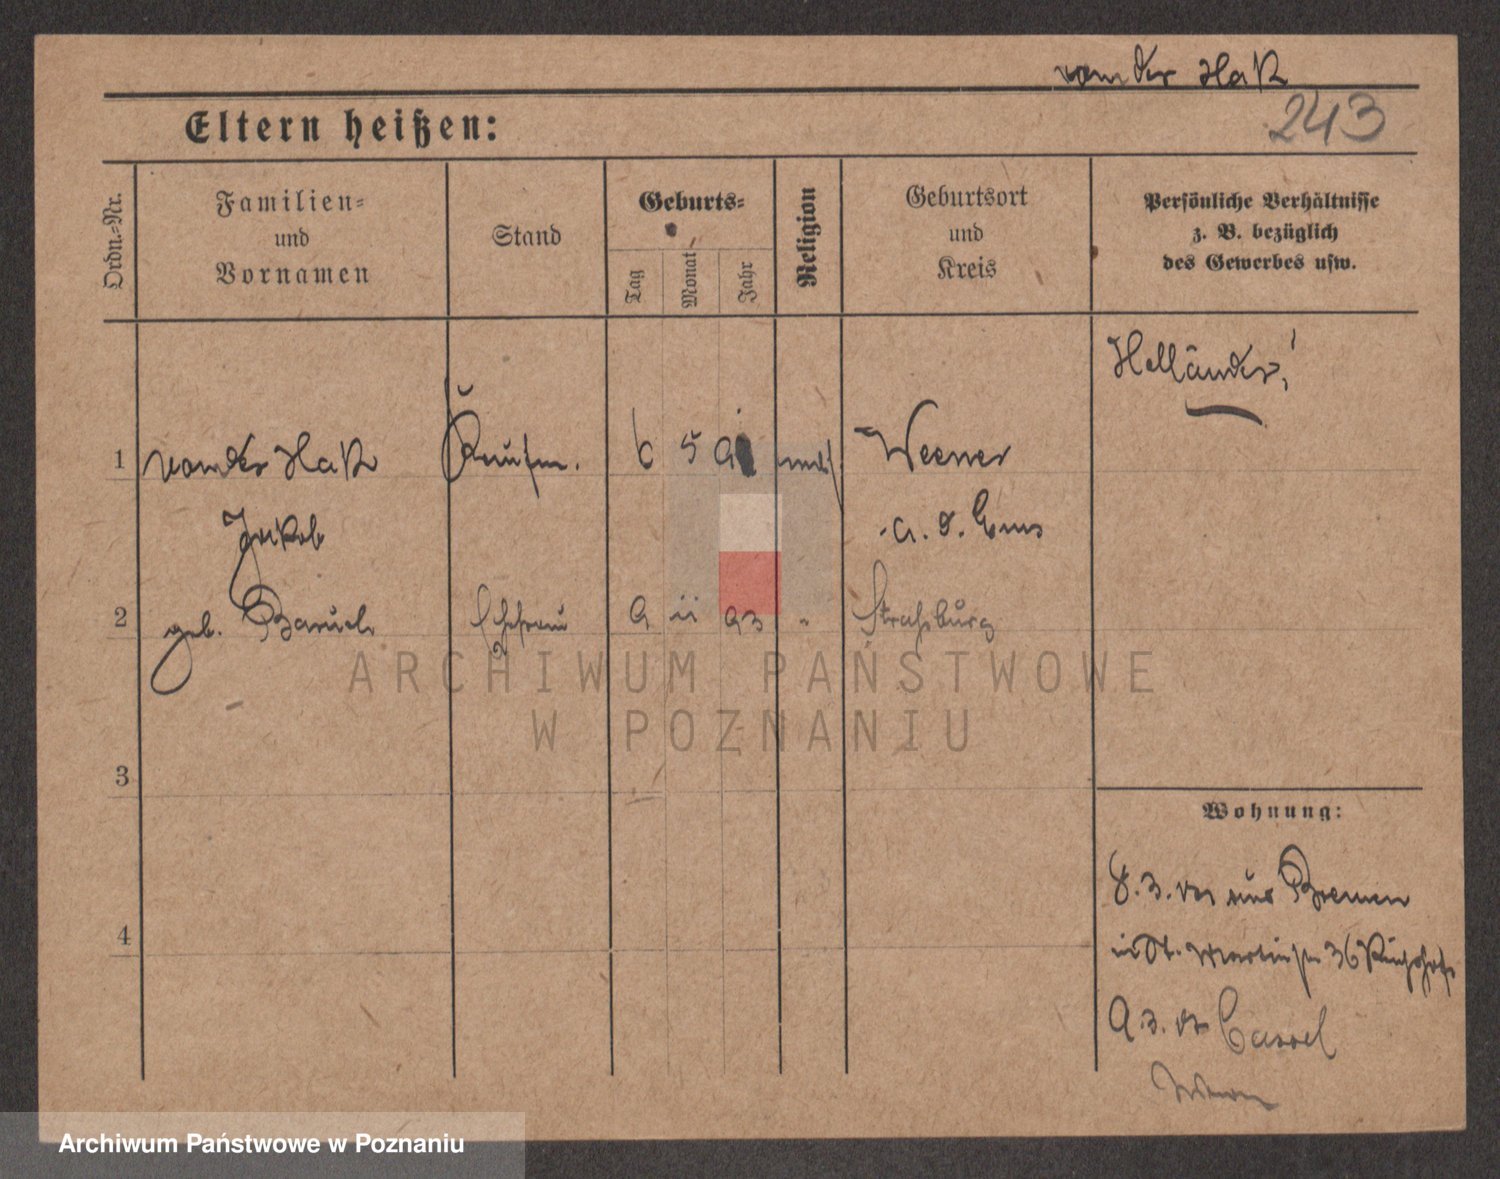 van der Hak
243
Eltern heißen:
Ordn.-Nr.
Familien-
und
Vornamen
Stand
Geburts-
Tag
Monat
Jahr
Religion
Geburtsort
und
Kreis
Persönliche Verhältnisse
z. B. bezüglich
des Gewerbes usw.
Holländer!
1 van der Hak Kaufm. 6 5 Weener
Jakob a. d. Ems
2 geb. Baruch Ehefrau 9 11 93 " Strassburg
3
4
Wohnung:
8.3. aus Bremen
in St. Martinstr. 36
9.3. Cassel
ARCHIWUM PAŃSTWOWE
W POZNANIU
Archiwum Państwowe w Poznaniu